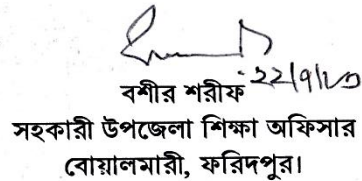 বশীর শরীফ
সহকারী উপজেলা শিক্ষা অফিসার
বোয়ালমারী, ফরিদপুর।